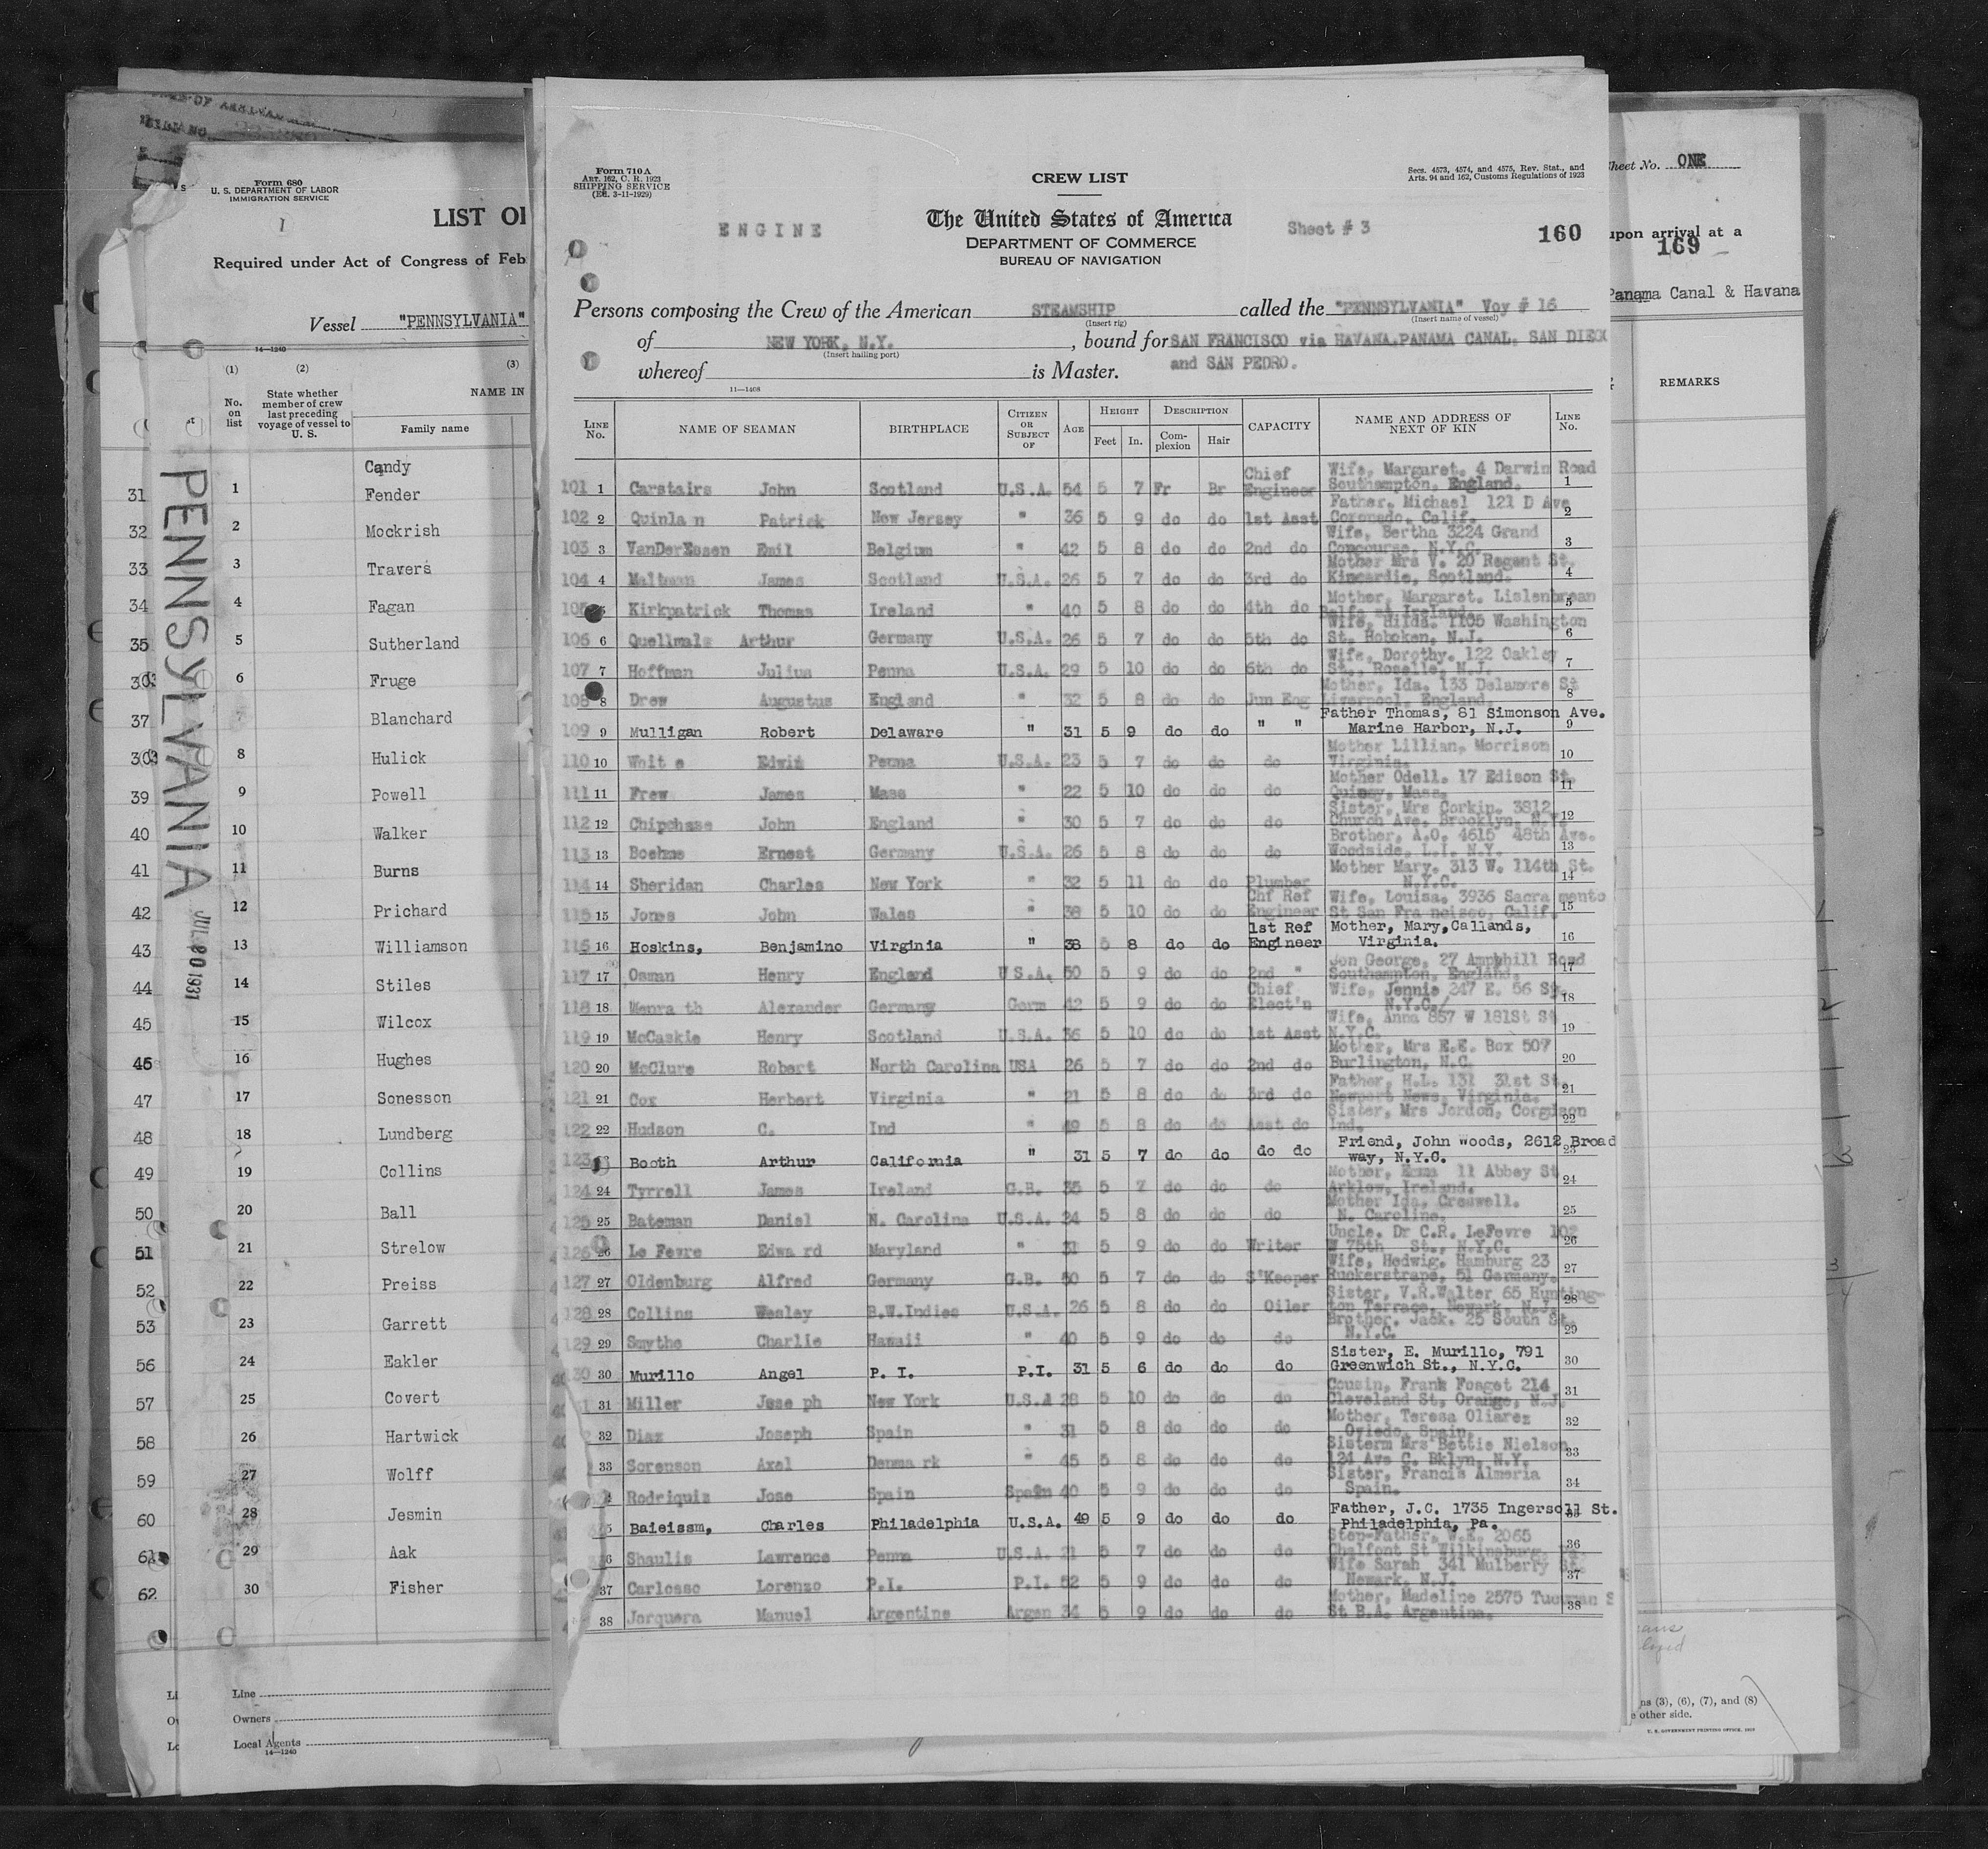 Form 680
U. S. DEPARTMENT OF LABOR
IMMIGRATION SERVICE
LIST OF
Required under Act of Congress of Feb
Vessel "PENNSYLVANIA"
14—1240
(1) (2) (3)
No. on list
State whether member of crew last preceding voyage of vessel to U. S.
NAME IN
Family name
PENNSYLVANIA
JUL 20 1931
Candy
31 1 Fender
32 2 Mockrish
33 3 Travers
34 4 Fagan
35 5 Sutherland
303 6 Fruge
37 Blanchard
303 8 Hulick
39 9 Powell
40 10 Walker
41 11 Burns
42 12 Prichard
43 13 Williamson
44 14 Stiles
45 15 Wilcox
46 16 Hughes
47 17 Sonesson
48 18 Lundberg
49 19 Collins
50 20 Ball
51 21 Strelow
52 22 Preiss
53 23 Garrett
56 24 Eakler
57 25 Covert
58 26 Hartwick
59 27 Wolff
60 28 Jesmin
61 29 Aak
62 30 Fisher
Line
Owners
Local Agents
14—1240
Form 710 A
ART. 162, C. R. 1923
SHIPPING SERVICE
(Ed. 3-11-1929)
CREW LIST
Secs. 4573, 4574, and 4575, Rev. Stat., and
Arts. 94 and 162, Customs Regulations of 1923
ENGINE
The United States of America
Sheet # 3
160
DEPARTMENT OF COMMERCE
BUREAU OF NAVIGATION
Persons composing the Crew of the American STEAMSHIP called the "PENNSYLVANIA" Voy # 16
(Insert rig) (Insert name of vessel)
of NEW YORK, N.Y., bound for SAN FRANCISCO via HAVANA, PANAMA CANAL, SAN DIEGO
(Insert hailing port)
whereof is Master. and SAN PEDRO.
11—1408
LINE No. NAME OF SEAMAN BIRTHPLACE CITIZEN OR SUBJECT OF AGE HEIGHT Feet In. DESCRIPTION Complexion Hair CAPACITY NAME AND ADDRESS OF NEXT OF KIN LINE No.
101 1 Carstairs John Scotland U.S.A. 54 5 7 Fr Br Chief Engineer Wife, Margaret. 4 Darwin Road Southampton, England. 1
102 2 Quinlan Patrick New Jersey " 36 5 9 do do 1st Asst Father, Michael 121 D Ave Coronado, Calif. 2
103 3 VanDerEssen Emil Belgium " 42 5 8 do do 2nd do Wife, Bertha 3224 Grand Concourse, N.Y.C. 3
104 4 Maltman James Scotland U.S.A. 26 5 7 do do 3rd do Mother Mrs V. 20 Regent St. Kincardie, Scotland. 4
105 5 Kirkpatrick Thomas Ireland " 40 5 8 do do 4th do Mother, Margaret. Lislenbrean Belfast Ireland. 5
106 6 Quellmals Arthur Germany U.S.A. 26 5 7 do do 5th do Wife, Hilda. 1105 Washington St. Hoboken, N.J. 6
107 7 Hoffman Julius Penna U.S.A. 29 5 10 do do 6th do Wife, Dorothy. 122 Oakley St., Roselle, N.J. 7
108 8 Drew Augustus England " 32 5 8 do do Jun Eng Mother, Ida. 133 Delamore St Liverpool, England. 8
109 9 Mulligan Robert Delaware " 31 5 9 do do " " Father Thomas, 81 Simonson Ave. Marine Harbor, N.J. 9
110 10 Waite Edwin Penna U.S.A. 23 5 7 do do do Mother Lillian, Morrison Virginia. 10
111 11 Frew James Mass " 22 5 10 do do do Mother Odell. 17 Edison St. Quincy, Mass. 11
112 12 Chipchase John England " 30 5 7 do do do Sister, Mrs Corkin. 3812 Church Ave. Brooklyn, N.Y. 12
113 13 Boehme Ernest Germany U.S.A. 26 5 8 do do do Brother, A.O. 4615 48th Ave. Woodside, L.I. N.Y. 13
114 14 Sheridan Charles New York " 32 5 11 do do Plumber Mother Mary. 313 W. 114th St. N.Y.C. 14
115 15 Jones John Wales " 38 5 10 do do Chf Ref Engineer Wife, Louisa. 3936 Sacramento St San Francisco, Calif. 15
116 16 Hoskins, Benjamino Virginia " 38 5 8 do do 1st Ref Engineer Mother, Mary, Callands, Virginia. 16
117 17 Osman Henry England U S.A. 50 5 9 do do 2nd " Jon George, 27 Amphhill Road Southampton, England. 17
118 18 Menrath Alexander Germany Germ 42 5 9 do do Chief Elect'n Wife, Jennie 247 E. 56 St. N.Y.C./ 18
119 19 McCaskie Henry Scotland U.S.A. 36 5 10 do do 1st Asst Wife, Anna 857 W 181St St N.Y.C. 19
120 20 McClure Robert North Carolina USA 26 5 7 do do 2nd do Mother, Mrs E.E. Box 507 Burlington, N.C. 20
121 21 Cox Herbert Virginia " 21 5 8 do do 3rd do Father, H.L. 131 31st St. Newport News, Virginia. 21
122 22 Hudson C. Ind " 49 5 8 do do Asst do Sister, Mrs Jordon, Ind. 22
123 Booth Arthur California " 31 5 7 do do do do Friend, John Woods, 2612 Broad way, N.Y.C. 23
124 24 Tyrrell James Ireland G.B. 35 5 7 do do do Mother, Emma 11 Abbey St Arklow, Ireland. 24
125 25 Bateman Daniel N. Carolina U.S.A. 24 5 8 do do do Mother Ida, Creswell. N. Carolina. 25
126 26 Le Fevre Edward Maryland " 31 5 9 do do Writer Uncle. Dr C.R. LeFevre 102 W 75th St., N.Y.C. 26
127 27 Oldenburg Alfred Germany G.B. 50 5 7 do do S'Keeper Wife, Hedwig. Hamburg 23 Ruckerstrape, 51 Germany. 27
128 28 Collins Wesley B.W.Indies U.S.A. 26 5 8 do do Oiler Sister, V.R.Walter 65 Hunting- ton Terrace, Newark, N.J. 28
129 29 Smythe Charlie Hawaii " 40 5 9 do do do Brother. Jack. 25 South St. N.Y.C. 29
30 Murillo Angel P. I. P.I. 31 5 6 do do do Sister, E. Murillo, 791 Greenwich St., N.Y.C. 30
31 Miller Joseph New York U.S.A 28 5 10 do do do Cousin, Frank Fosget 214 Cleveland St, Orange, N.J. 31
32 Diaz Joseph Spain " 31 5 8 do do do Mother, Teresa Oliarez Oviedo, Spain. 32
33 Sorenson Axel Denmark " 45 5 8 do do do Sisterm Mrs Bettie Nielson 124 Ave C. Bklyn, N.Y. 33
Rodriquiz Jose Spain Spain 40 5 9 do do do Sister, Francis Almeria Spain. 34
5 Baieissm, Charles Philadelphia U.S.A. 49 5 9 do do do Father, J.C. 1735 Ingersoll St. Philadelphia, Pa. 35
6 Shaulis Lawrence Penna U.S.A. 21 5 7 do do do Step-Father, W.E. 2065 Chalfont St Wilkinsburg, 36
37 Carlosso Lorenzo P.I. P.I. 52 5 9 do do do Wife Sarah 341 Mulberry St. Newark, N.J. 37
38 Jorquera Manuel Argentine Argen 34 5 9 do do do Mother, Madeline 2575 Tucuman S St B.A. Argentina. 38
Sheet No. ONE
upon arrival at a
169
Panama Canal & Havana
REMARKS
ns (3), (6), (7), and (8)
e other side.
U. S. GOVERNMENT PRINTING OFFICE